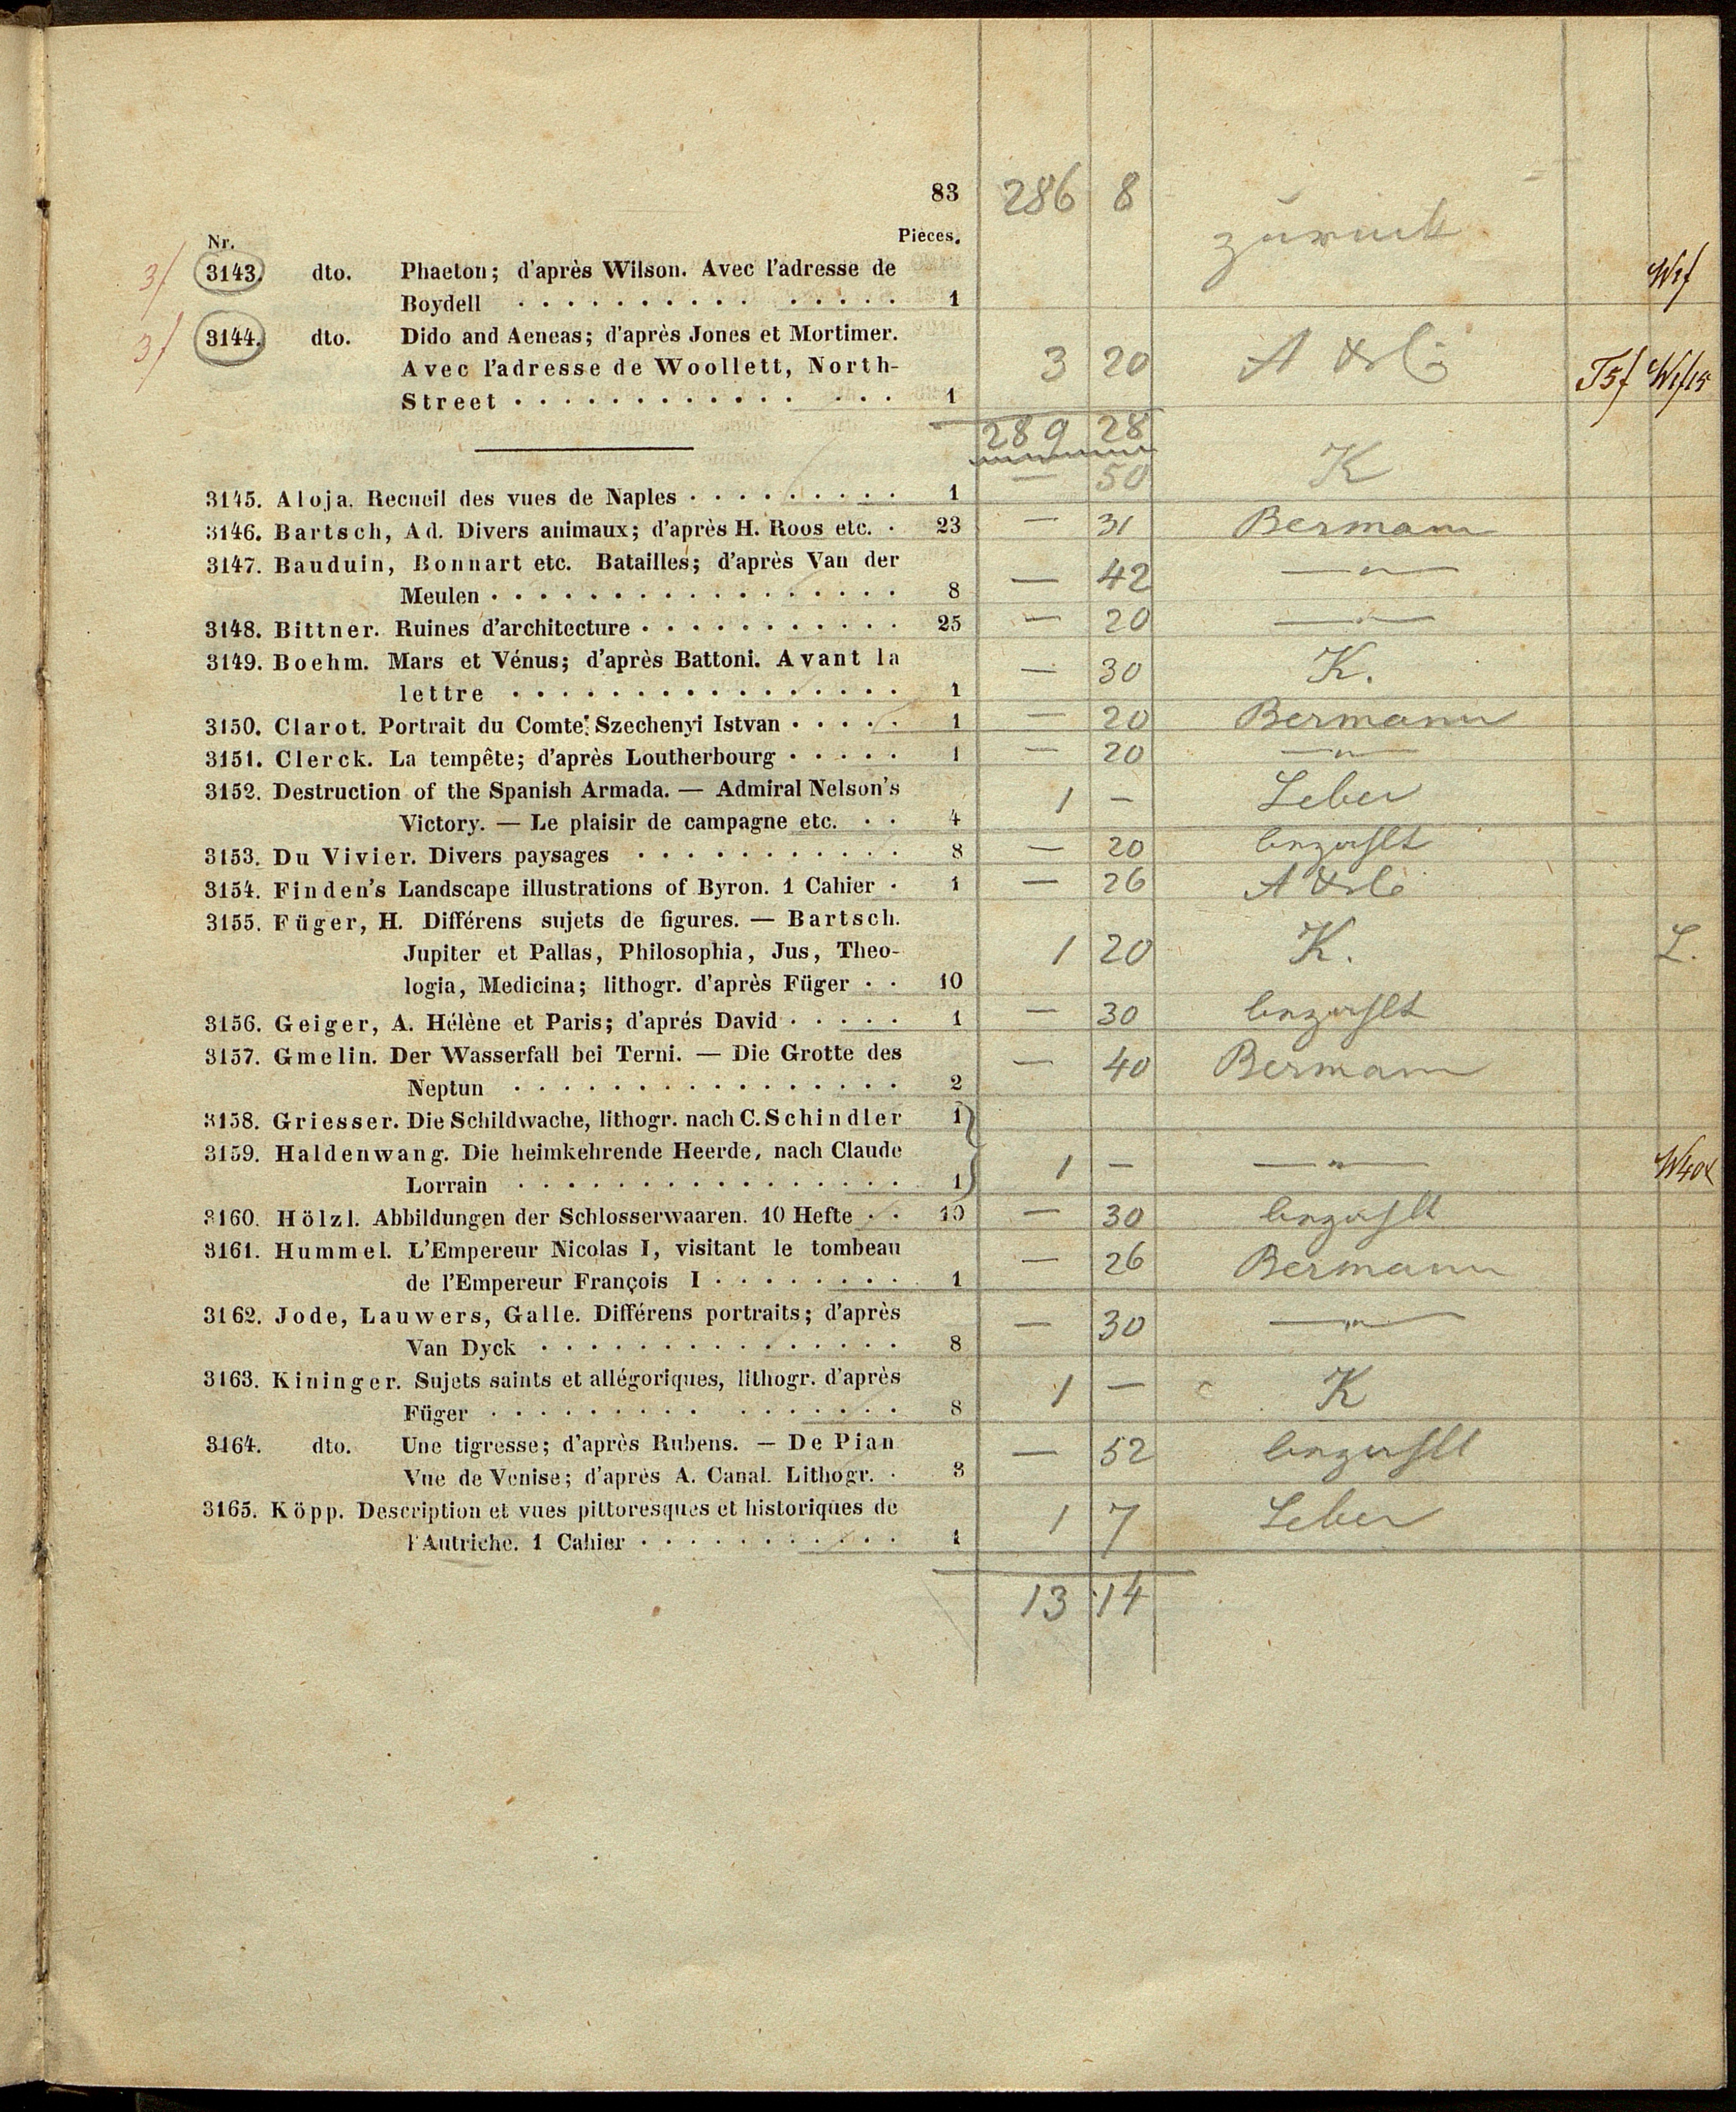 83 286 8
Nr. Pièces. zurück
3f 3143. dto. Phaeton; d'après Wilson. Avec l'adresse de
Boydell 1
3f 3144. dto. Dido and Aeneas; d'après Jones et Mortimer.
Avec l'adresse de Woollett, North- 3 20
Street 1
289 28
3145. Aloja. Recueil des vues de Naples 1 — 50 K
3146. Bartsch, Ad. Divers animaux; d'après H. Roos etc. 23 — 31 Bermann
3147. Bauduin, Bonnart etc. Batailles; d'après Van der
Meulen 8 — 42 —"—
3148. Bittner. Ruines d'architecture 25 — 20 —"—
3149. Boehm. Mars et Vénus; d'après Battoni. Avant la
lettre 1 — 30 K.
3150. Clarot. Portrait du Comte: Szechenyi Istvan 1 — 20 Bermann
3151. Clerck. La tempête; d'après Loutherbourg 1 — 20 —"—
3152. Destruction of the Spanish Armada. — Admiral Nelson's
Victory. — Le plaisir de campagne etc. 4 1 — Leber
3153. Du Vivier. Divers paysages 8 — 20 bezahlt
3154. Finden's Landscape illustrations of Byron. 1 Cahier 1 — 26
3155. Füger, H. Différens sujets de figures. — Bartsch.
Jupiter et Pallas, Philosophia, Jus, Theo- 1 20 K. L.
logia, Medicina; lithogr. d'après Füger 10
3156. Geiger, A. Hélène et Paris; d'aprés David 1 — 30 bezahlt
3157. Gmelin. Der Wasserfall bei Terni. — Die Grotte des
Neptun 2 — 40 Bermann
3158. Griesser. Die Schildwache, lithogr. nach C. Schindler 1
3159. Haldenwang. Die heimkehrende Heerde, nach Claude
Lorrain 1 1 — —"—
3160. Hölzl. Abbildungen der Schlosserwaaren. 10 Hefte 10 — 30 bezahlt
3161. Hummel. L'Empereur Nicolas I, visitant le tombeau
de l'Empereur François I 1 — 26 Bermann
3162. Jode, Lauwers, Galle. Différens portraits; d'après
Van Dyck 8 — 30 —"—
3163. Kininger. Sujets saints et allégoriques, lithogr. d'après
Füger 8 1 — K
3164. dto. Une tigresse; d'après Rubens. — De Pian
Vue de Venise; d'aprés A. Canal. Lithogr. 3 — 52 bezahlt
3165. Köpp. Description et vues pittoresques et historiques de
l'Autriche. 1 Cahier 1 1 7 Leber
13 14